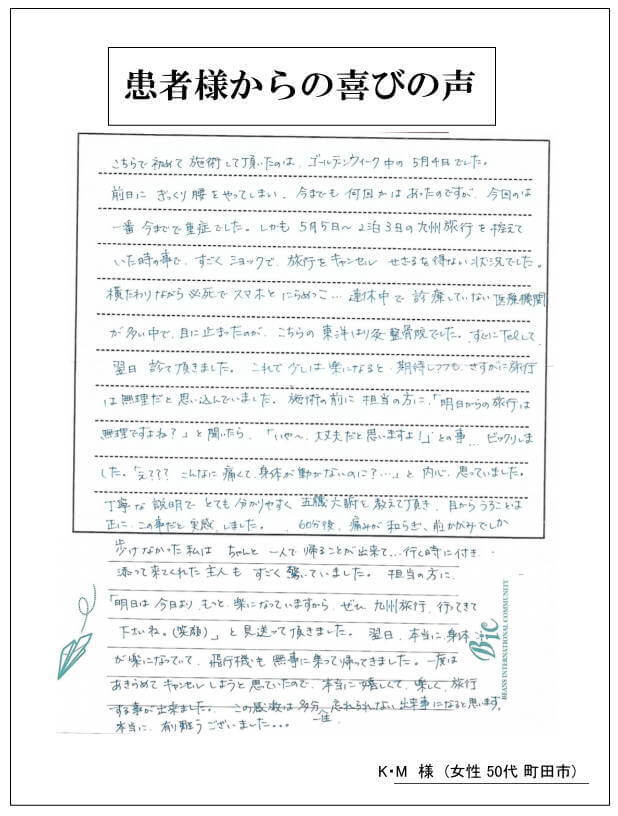 患者様からの喜びの声
こちらで初めて施術して頂いたのは、ゴールデンウィーク中の5月4日でした。
前日にぎっくり腰をやってしまい、今までも何回かはあったのですが、今回のは
一番今までで重症でした。しかも5月5日〜2泊3日の九州旅行を控えて
いた時の事で、すごくショックで、旅行をキャンセルせざるを得ない状況でした。
横たわりながら必死でスマホとにらめっこ…連休中で診療していない医療機関
が多い中で、目に止まったのが、こちらの東洋はり灸整骨院でした。すぐにTelして、
翌日診て頂きました。これで少しは楽になると、期待しつつも、さすがに旅行
は無理だと思い込んでいました。施術の前に担当の方に、「明日からの旅行は
無理ですよね?」と聞いたら、「いや〜、大丈夫だと思いますよ!」との事…ビックリしま
した。「え???こんなに痛くて、身体が動かないのに?…」と内心、思っていました。
丁寧な説明でとても分かりやすく五臓六腑を教えて頂き、目からうろことは
正に、この事だと実感しました。60分後、痛みが和らぎ、前かがみでしか
歩けなかった私はちゃんと一人で帰ることが出来て…行く時に付き
添って来てくれた主人もすごく驚いていました。担当の方に、
「明日は今日より、もっと、楽になっていますから、ぜひ九州旅行、行ってきて
下さいね。(笑顔)」と見送って頂きました。翌日、本当に、身体
が楽になっていて、飛行機も無事に乗って帰ってきました。一度は
あきらめてキャンセルしようと思っていたので、本当に嬉しくて、楽しく、旅行
する事が出来ました。この感激は多分一生忘れられない出来事になると思います。
本当に、有り難うございました...
Bic
BEANS INTERNATIONAL COMMUNITY
K・M 様(女性 50代 町田市)